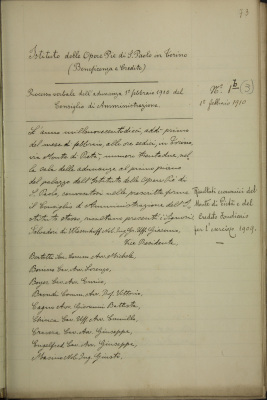 73
Istituto delle Opere Pie di S. Paolo in Torino
(Beneficenza e Credito)
Processo verbale dell'adunanza 1º febbraio 1910 del
Consiglio di Amministrazione.
Nº 1º (3)
1º febbraio 1910
L'anno millenovecentodieci, addì primo
del mese di febbraio, alle ore sedici, in Torino,
via Monte di Pietà, numero trentadue, nel
la sala delle adunanze al primo piano
del palazzo dell'Istituto delle Opere Pie di
S. Paolo, convocatosi nelle prescritte forme
il Consiglio di Amministrazione dell'I
stituto stesso, risultano presenti i Signori:
Vice Presidente
Risultati economici del
Monte di Pietà e del
Credito Fondiario
per l'esercizio 1909.
Battisti Cav. Comm. Avv. Michele,
Borioni Cav. Avv. Lorenzo,
Boyer Cav. Avv. Enrico,
Comm. Avv. Prof. Vittorio,
Avv. Giovanni Battista,
Cav. Uff. Avv. Camillo,
Cav. Avv. Giuseppe,
Engelfred Cav. Avv. Giuseppe,
Ing. Donato,